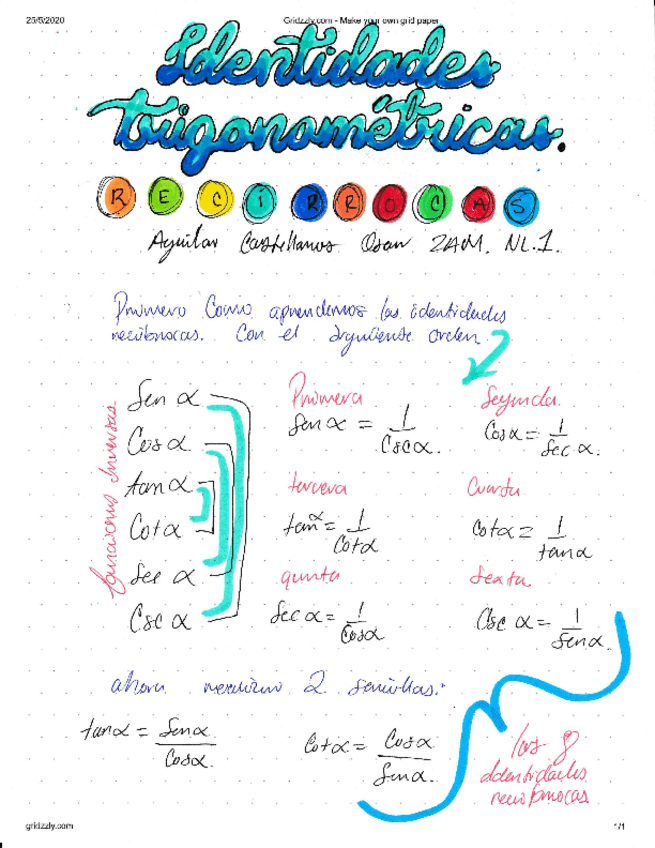 25/5/2020
Gridzzly.com - Make your own grid paper
Identidades
trigonométricas.
RECÍRROCAS
Aguilar Castellanos Osan 2AM. NL.1.
Primero Como aprendemos las identidades
recíbrocas. Con el siguiente orden
Funciones Inversas
Sen α
Cos α
tan α
Cot α
Sec α
Csc α
Primera
Sen α = 1/Csc α.
Segunda.
Cos α = 1/Sec α.
tercera
tan α = 1/Cot α
Cuarta
Cot α = 1/tan α
quinta
Sec α = 1/Cos α
Sexta
Csc α = 1/Sen α.
ahora 2 sencillas:
tan α = Sen α/Cos α.
Cot α = Cos α/Sen α.
las 8
identidades
recíbrocas
gridzzly.com
1/1